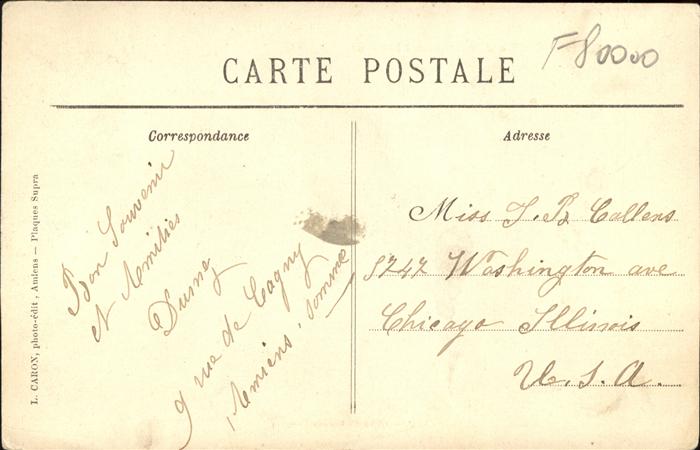 CARTE POSTALE
F 80000
Correspondance
Adresse
Bon Souvenir
et Amitiés
Dumey
9 rue de Cagny
Amiens, Somme
Miss J. B. Callens
5747 Washington ave
Chicago Illinois
U. S. A.
L. CARON, photo-édit, Amiens — Plaques Supra